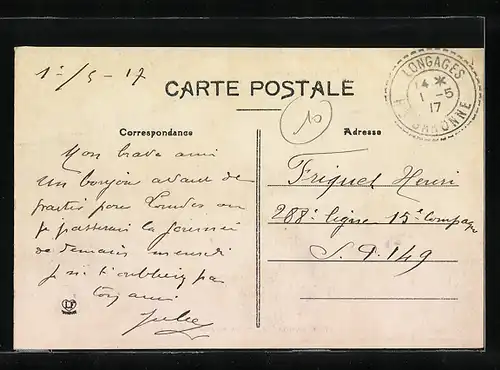 1-/5-17
CARTE POSTALE
LONGAGES
14 *
1 -5
17
Hte GARONNE
10
Correspondance
Adresse
Mon brave ami
un bonjour avant de
partir pour Lourdes ou
je passerai la journée
de demain mercredi
je ne t'oublierai pas
ton ami
Jules
Friquet Henri
288e ligne 15e Compagnie
S. P. 149